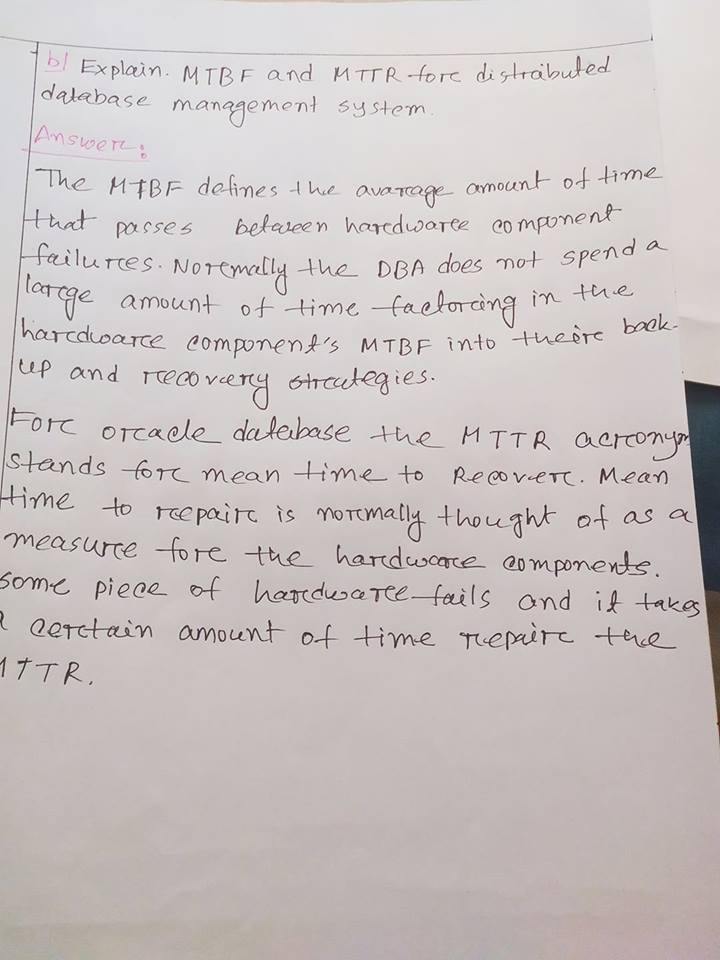 b) Explain. MTBF and MTTR forc distributed
database management system.
Answerc:
The MTBF defines the avarcage amount of time
that passes between harcdwarce component
failurces. Norcmally the DBA does not spend a
larcge amount of time factorcing in the
harcdwarce component's MTBF into theirc back-
up and rcecovercy strategies.
Forc orcacle database the MTTR acrconym
stands forc mean time to Recoverc. Mean
time to rcepairc is norcmally thought of as a
measurce forc the harcdwarce components.
some piece of harcdwarce fails and it takes
a cerctain amount of time rcepairc the
MTTR.